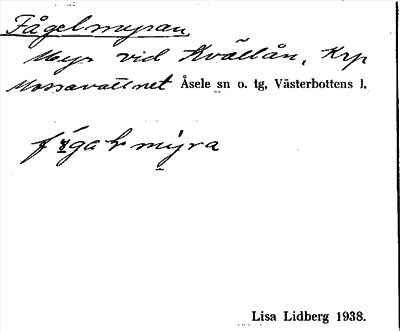 Fågelmyran,
Myr vid Kvällån, Krp
Mossavattnet Åsele sn o. tg, Västerbottens l.
myra
Lisa Lidberg 1938.